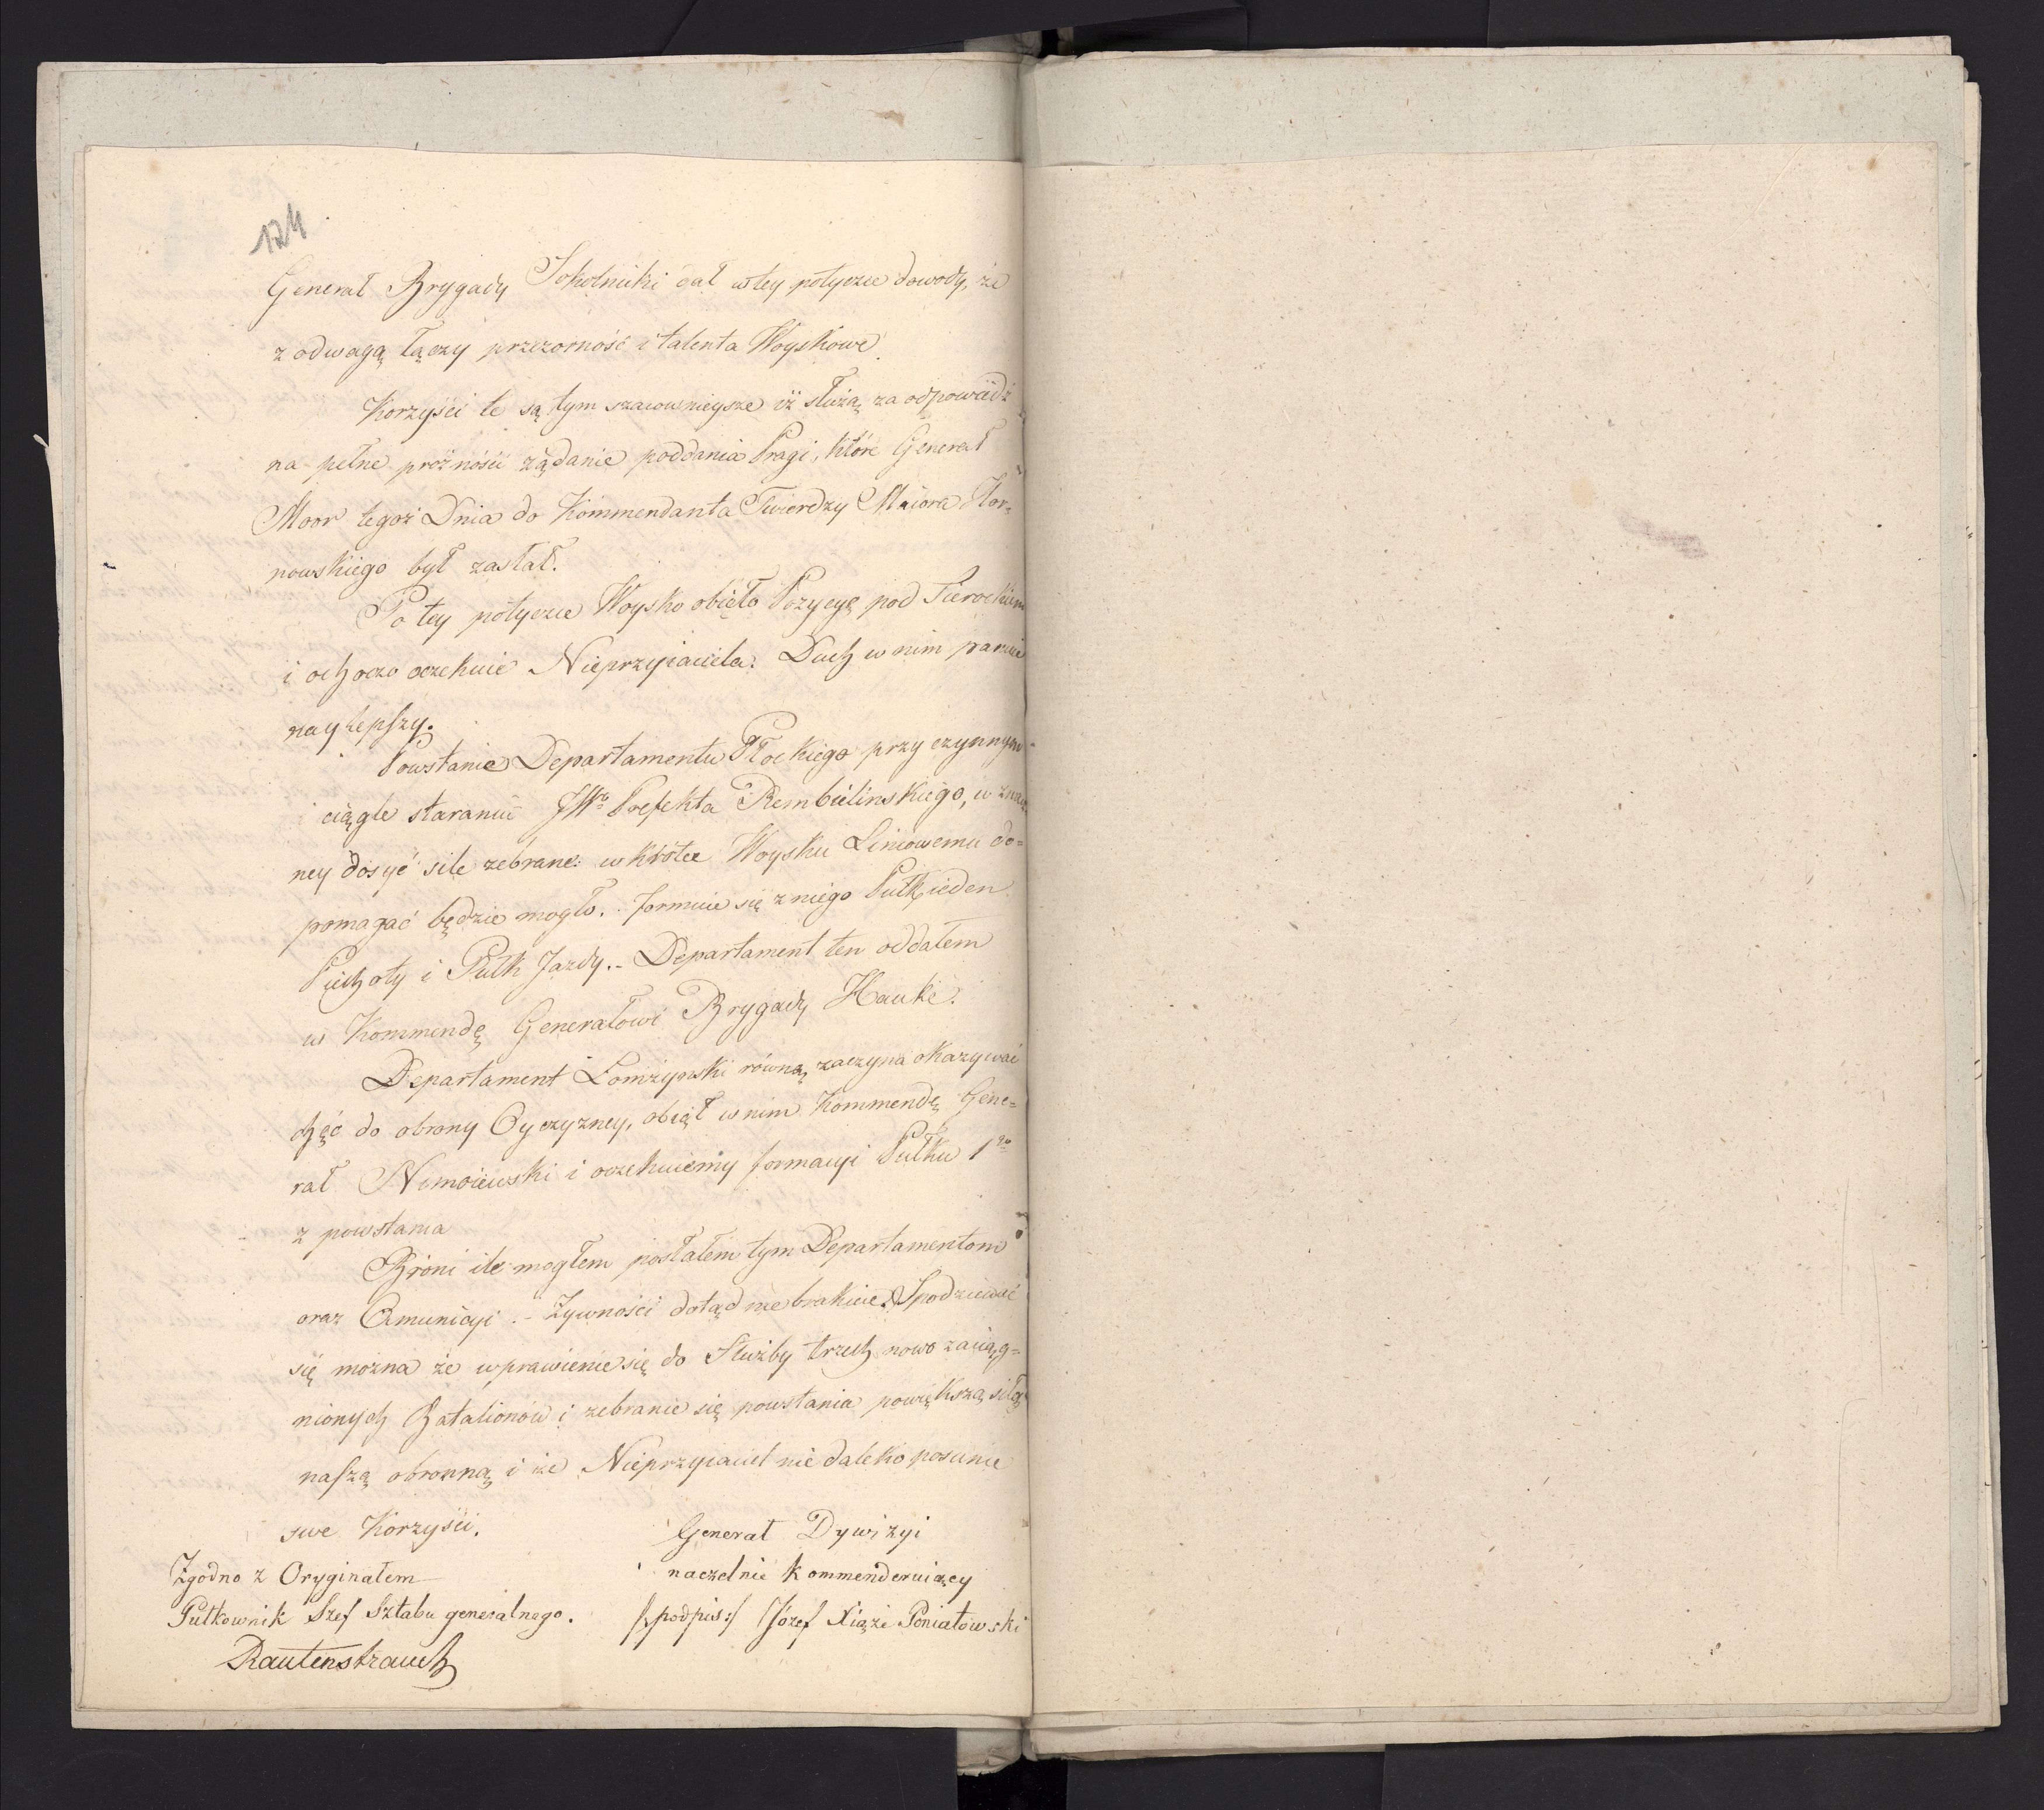 124
Generał Brygady Sokolnicki dał w tey potyczce dowody, że
z odwagą łączy przezorność i talenta Woyskowe.
Korzyści te są tym szacownieysze iż służą za odpowiedź
na pełne prożności żądanie poddania Pragi, które Generał
Moor tegoż Dnia do Kommendanta Twierdzy Maiora Hor-
nowskiego był zasłał.
Po tey potyczce Woysko obięło Pozycyę pod Sierockiem
i ochoczo oczekuie Nieprzyiaciela. Duch w nim panuie
naylepszy.
Powstanie Departamentu Płockiego przy czynnym
i ciągle staraniu JWo Prefekta Rembielinskiego, w znacz-
ney dosyć sile zebrane: wkrótce Woysku Liniowemu do=
pomagać będzie mogło. formuie się z niego Pułk ieden
Piechoty i Pułk Jazdy.- Departament ten oddałem
w Kommendę Generałowi Brygady Hauke.
Departament Łomżyński równą zaczyna okazywać
chęć do obrony Oyczyzney, obiął w nim Kommendę Gene=
rał Niemoiewski i oczekuiemy formacyi Pułku 1go
z powstania
Broni ile mogłem posłałem tym Departamentom
oraz Amunicyi.- Żywności dotąd nie brakuie. Spodziewać
się można że wprawienie się do Służby trzech nowo zaciąg=
nionych Batalionów i zebranie się powstania powiększą siłę
naszą obronną i że Nieprzyiaciel nie daleko posunie
swe Korzyści.
Generał Dywizyi
naczelnie kommenderuiący
/:podpis:/ Józef Xiąże Poniatowski
Zgodno z Oryginałem
Pułkownik Szef Sztabu generalnego.
Rautenstrauch